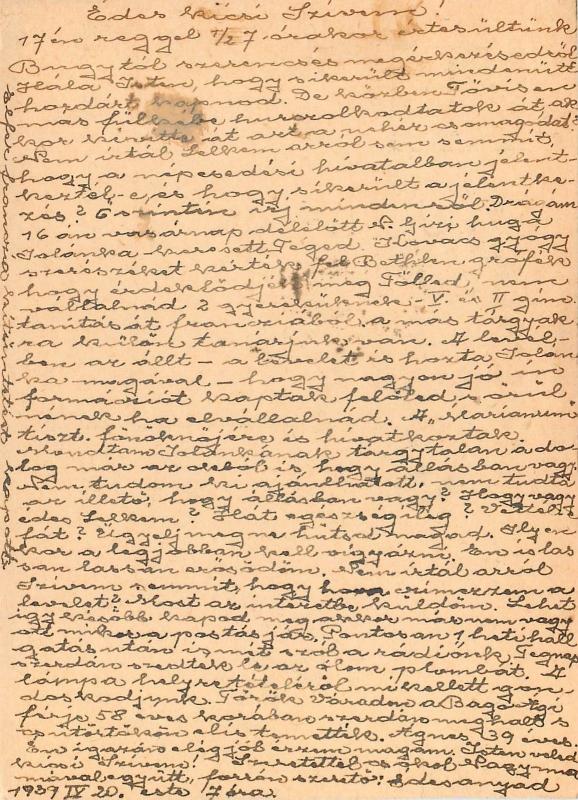 Édes kicsi Szívem!
17én reggel 1/2 7 órakor értesültünk
Bugytól szerencsés megérkezésedről
Hála Isten, hogy sikerült mindenütt
hordárt kapnod. De közben Tövisen
más fülkébe hurcolkodtatok át, ak-
kor kivitte át azt a nehéz csomagodat?
Nem írtál Lelkem arról sem semmit,
hogy a népesedési hivatalban jelent-
keztél-e, és hogy sikerült a jelentke-
zés? Őszintén írj mindenről. Dragám
16án vasárnap délelőtt N. Gizi huga
Jolánka keresett Téged. Kovács gyógy
szerészéket kérték fel Bethlen grófék
hogy érdeklődjék meg Tőlled, nem
vállalnád 2 gyereküknek - V. és II gim.
tanítását franciából, a más tárgyak
ra külön tanárjuk van. A levél-
ben az állt - a levelet is hozta Jolán
ka magával - hogy nagyon jó in
formációt kaptak felőled s örül
nének ha elvállalnád. A "Marianum"
tiszt. főnöknőjére is hivatkoztak.
Mondtam Jolánkának tárgytalan a do-
log már az okból is, hogy állásban vagy
nem tudom ki ajánlhatott, nem tudta
az illető, hogy állásban vagy? Hogy vagy
édes Lelkem? Hát egészségileg? Vettél
fát? Vigyelj meg ne hűtsd magad. Ilyen
kor a legjobban kell vigyázni. Én is las
san lassan erősödöm. Nem írtál arról
Szívem semmit, hogy hova címezzem a
levelet? Most az internátusba küldöm. Lehet
így később kapod meg, mikor más nem vagy
ott mikor a postás jár. Pontosan 1 heti hall
gatás után ismét szól a rádiónk. Tegnap
szerdán szedték le az ólom plombát. A
lámpa helyretételéről mi kellett gon-
doskodjunk. Török Váradon a Bagó Agi
férje 58 éves korában szerdán meghalt s
csütörtökön el is temették. Agnes 39 éves.
Én igazán elég jól érzem magam. Isten veled
kicsi Szívem! Szeretettel csókol Nagyma
mával együtt, forrón szerető: Édesanyád
1939 IV 20. este 7 óra.